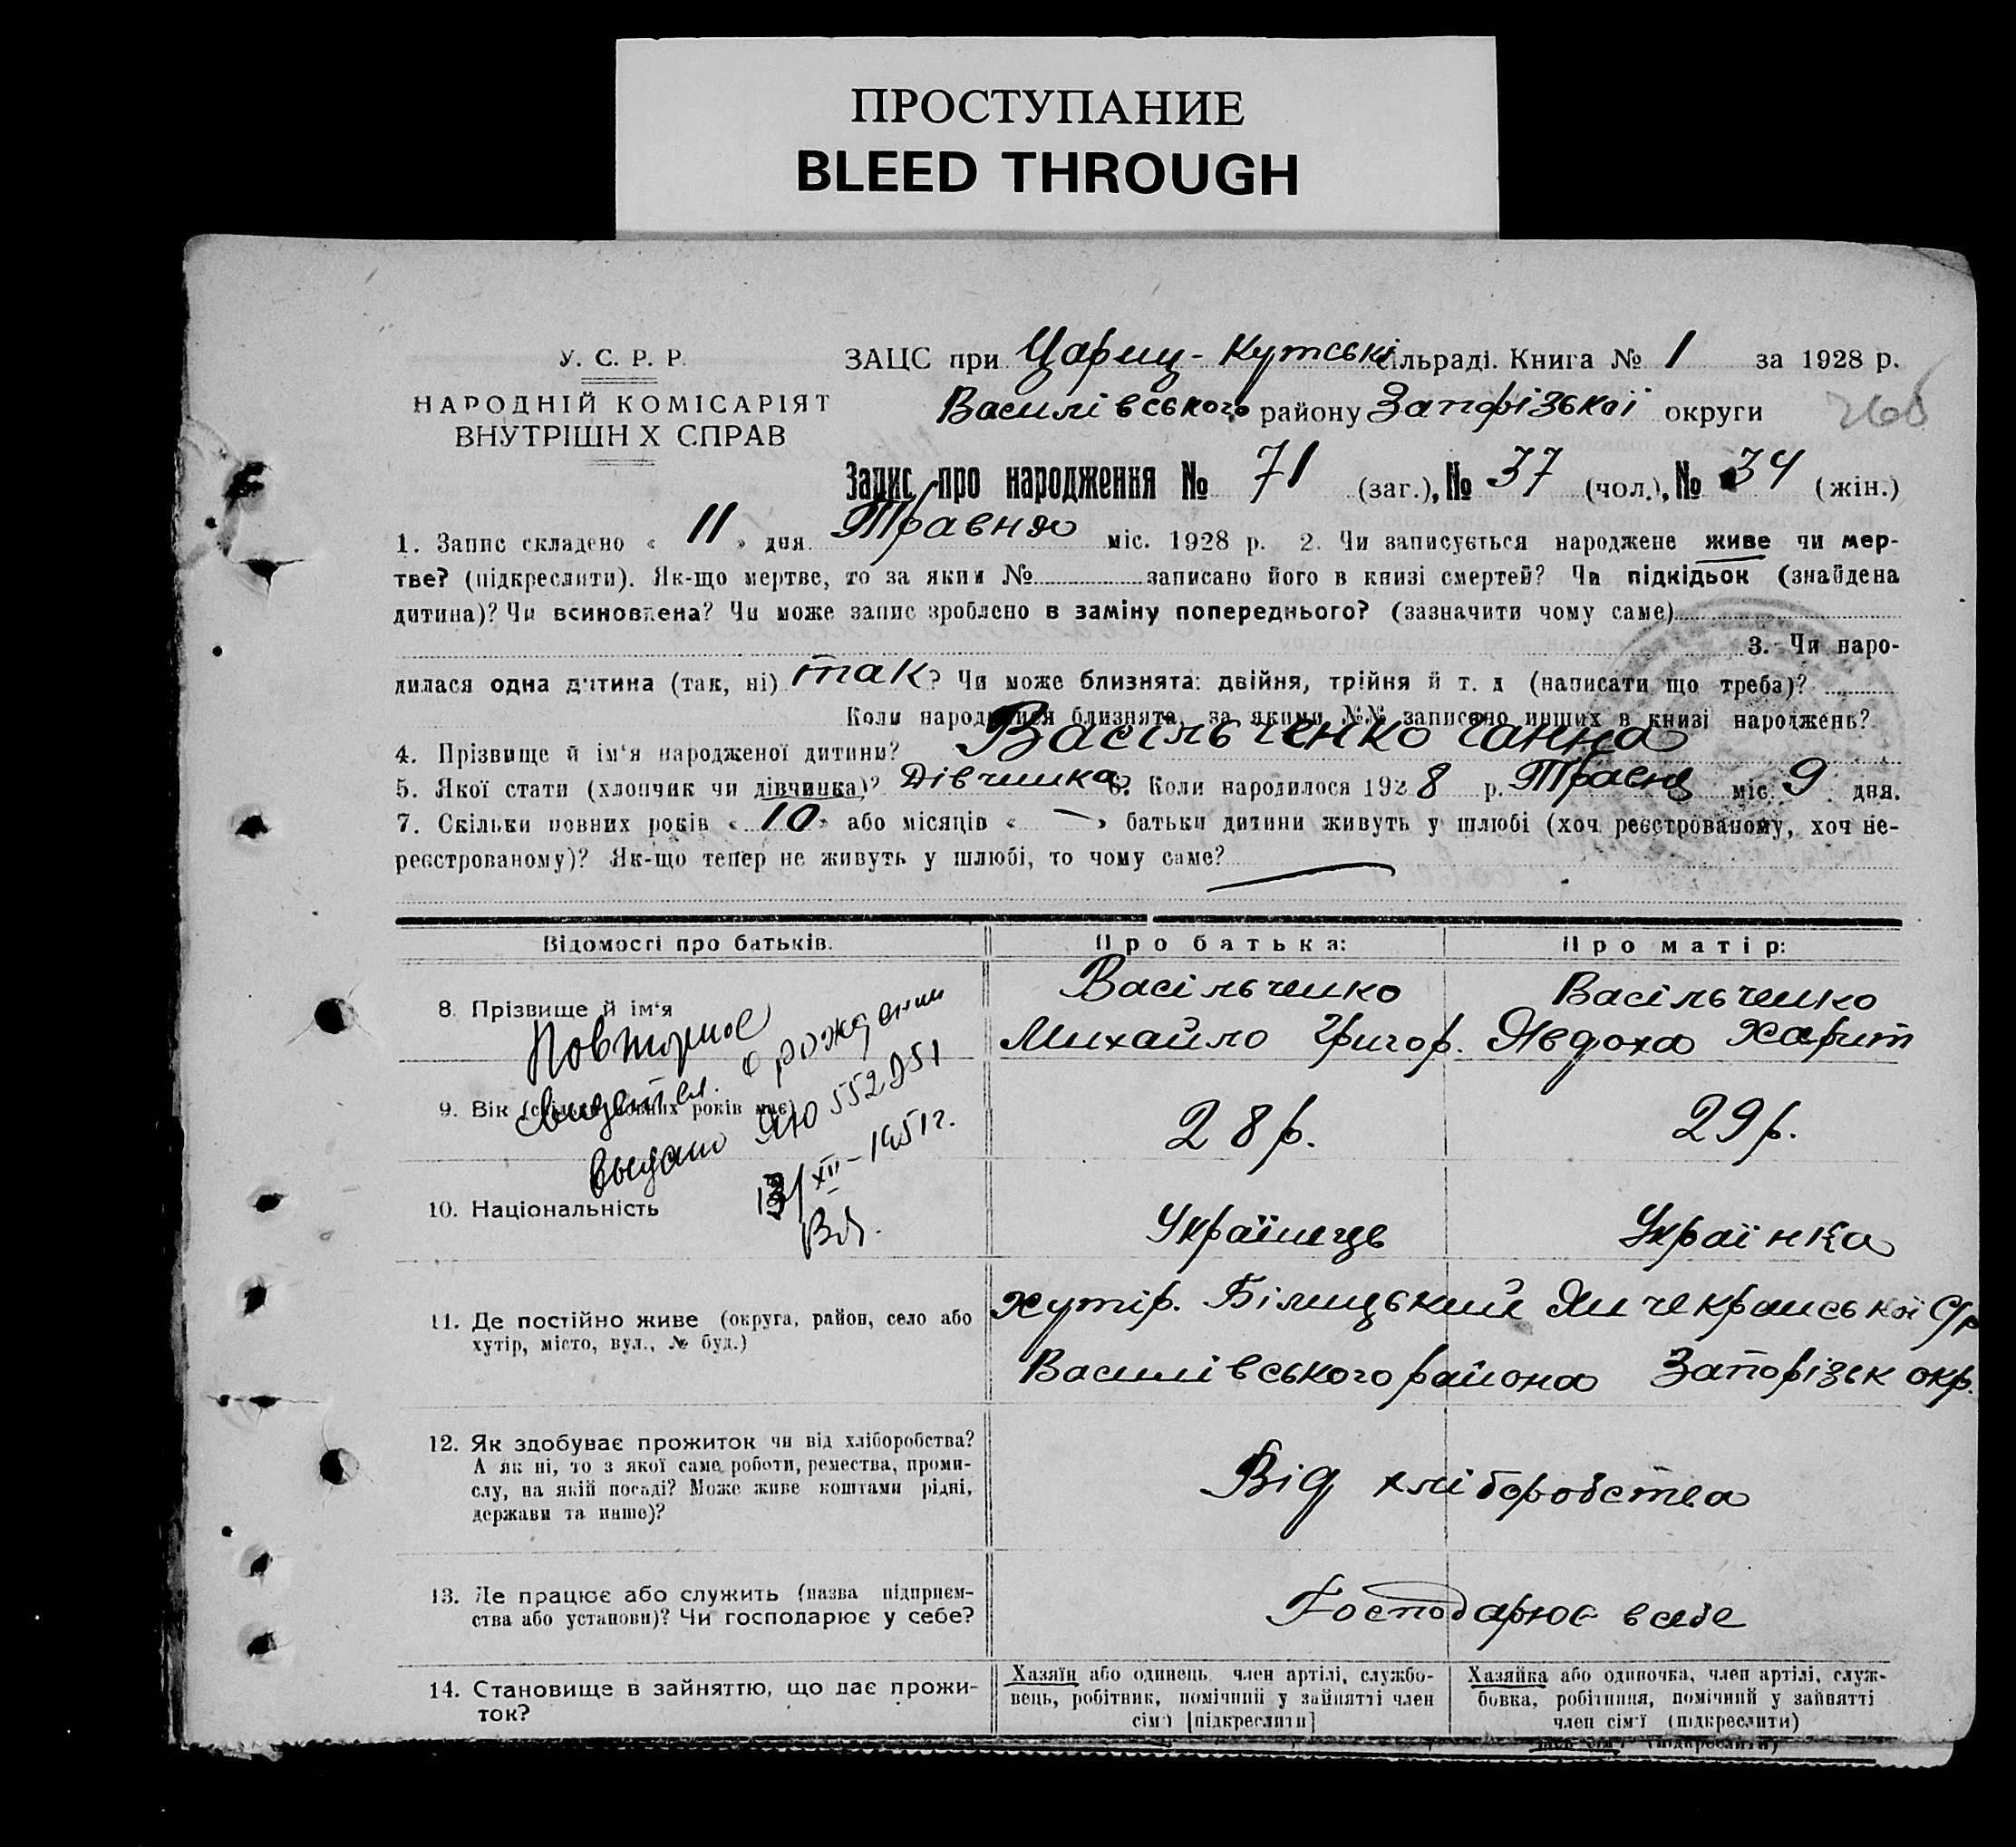 ПРОСТУПАНИЕ
BLEED THROUGH
У. С. Р. Р.
НАРОДНІЙ КОМІСАРІЯТ
ВНУТРІШН Х СПРАВ
ЗАЦС при Цариц-Кутські сільраді. Книга № 1 за 1928 р.
Василівського району Запорізької округи
Запис про народження № 71 (заг.), № 37 (чол.), № 34 (жін.)
1. Запис складено « 11 » дня Травня міс. 1928 р. 2. Чи записується народжене живе чи мер-
тве? (підкреслити). Як-що мертве, то за яким № записано його в книзі смертей? Чи підкідьок (знайдена
дитина)? Чи всиновлена? Чи може запис зроблено в заміну попереднього? (зазначити чому саме)
3. Чи наро-
дилася одна дитина (так, ні) так? Чи може близнята: двійня, трійня й т. д (написати що треба)?
Коли народилися близнята, за якими №№ записано инших в книзі народжень?
4. Прізвище й ім'я народженої дитини? Васільченко Ганна
5. Якої стати (хлопчик чи дівчинка)? Дівчинка 6. Коли народилося 1928 р. Травня міс. 9 дня.
7. Скільки повних років « 10 » або місяців « — » батьки дитини живуть у шлюбі (хоч реєстрованому, хоч не-
реєстрованому)? Як-що тепер не живуть у шлюбі, то чому саме? —
Відомості про батьків. Про батька: Про матір:
8. Прізвище й ім'я
Васільченко
Михайло Григор.
Васільченко
Явдоха Харит
Повторное
свидетел. о рождении
выдано ЯЮ 552951
13/XII-1951г.
9. Вік (скільки повних років має)
28 р.
29 р.
10. Національність
Українець
Українка
11. Де постійно живе (округа, район, село або
хутір, місто, вул., № буд.)
хутір. Білицький Янчекрацської С/р
Василівського района Запорізьк окр.
12. Як здобуває прожиток чи від хліборобства?
А як ні, то з якої саме роботи, ремества, проми-
слу, на якій посаді? Може живе коштами рідні,
держави та инше)?
Від хліборобства
13. Де працює або служить (назва підприєм-
ства або установи)? Чи господарює у себе?
Господарює в себе
14. Становище в зайняттю, що дає прожи-
ток?
Хазяїн або одинець, член артілі, службо-
вець, робітник, помічний у зайнятті член
сім'ї [підкреслити]
Хазяйка або одиночка, член артілі, служ-
бовка, робітниця, помічний у зайнятті
член сім'ї (підкреслити)